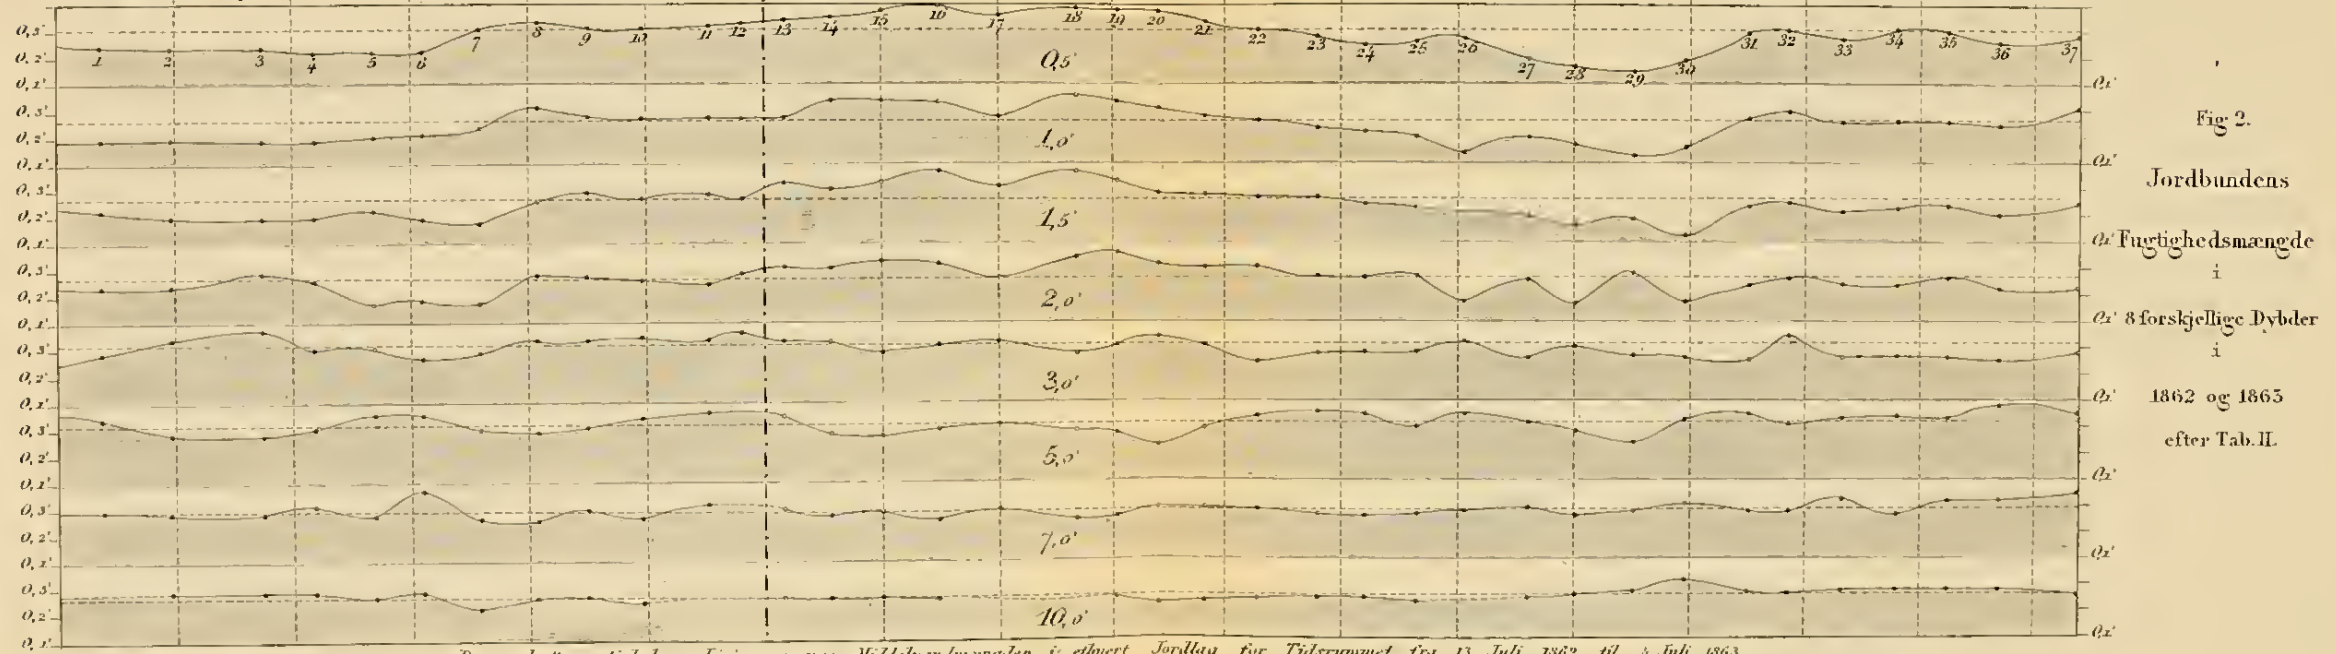 0,3'
0,2'
0,1'
0,3'
0,2'
0,1'
0,3'
0,2'
0,1'
0,3'
0,2'
0,1'
0,3'
0,2'
0,1'
0,3'
0,2'
0,1'
0,3'
0,2'
0,1'
0,3'
0,2'
0,1'
1 2 3 4 5 6 7 8 9 10 11 12 13 14 15 16 17 18 19 20 21 22 23 24 25 26 27 28 29 30 31 32 33 34 35 36 37
0,5'
1,0'
1,5'
2,0'
3,0'
5,0'
7,0'
10,0'
0,1'
0,1'
0,1'
0,1'
0,1'
0,1'
0,1'
0,1'
Fig 2.
Jordbundens
Fugtighedsmængde
i
8 forskjellige Dybder
i
1862 og 1863
efter Tab. II.
i ethvert Jordlag for Tidsrummet fra 13 Juli 1862 til 4 Juli 1863